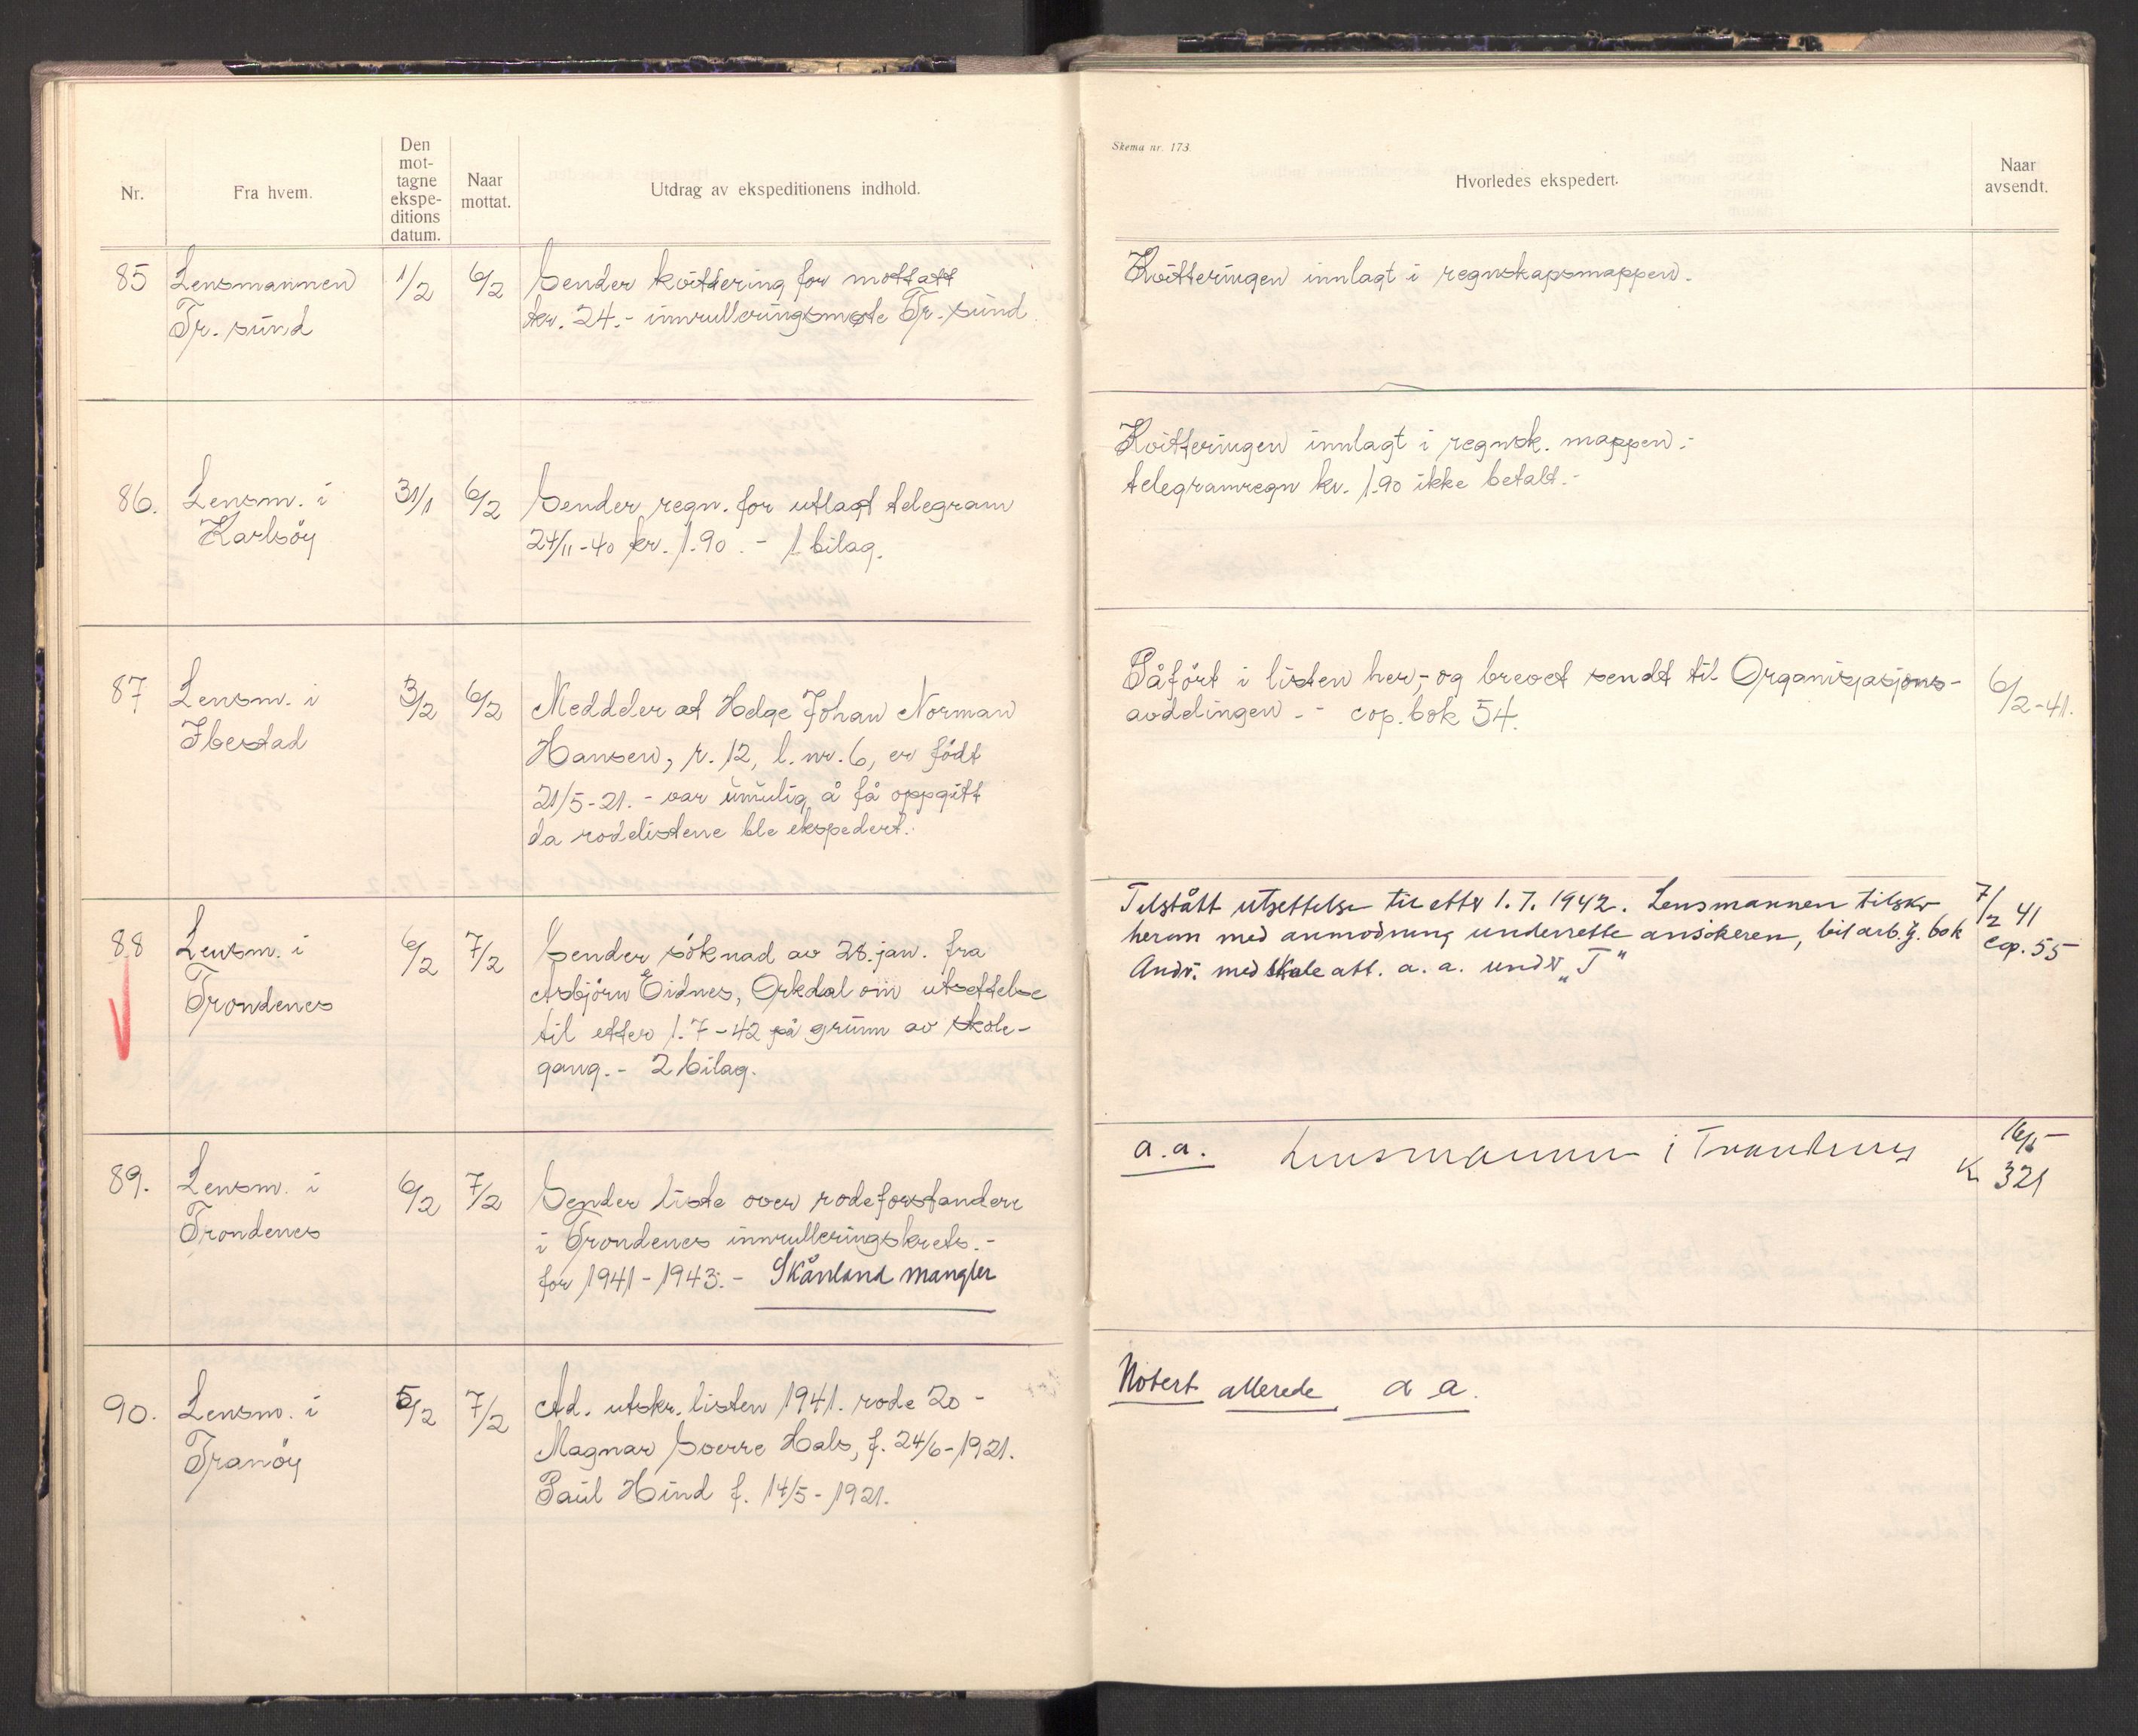 Nr.
Fra hvem.
Den
mot-
tagne
ekspe-
ditions
datum.
Naar
mottat.
Utdrag av ekspeditionens indhold.
85
Lensmannen
Tr. sund
1/2
6/2
Sender kvittering for mottatt
kr. 24.- innrulleringsmøte Tr. sund.
86.
Lensm. i
Karlsöy
31/1
6/2
Sender regn. for utlagt telegram
24/11-40 kr. 1.90.- 1 bilag.
87
Lensm. i
Ibestad
3/2
6/2
Meddeler at Helge Johan Norman
Hansen, r. 12, l. nr. 6, er födt
21/5-21. - var umulig å få oppgitt
da rodelistene ble ekspedert.
88
Lensm. i
Trondenes
6/2
7/2
Sender söknad av 28. jan. fra
Asbjörn Eidnes, Orkdal om utsettelse
til etter 1.7-42 på grunn av skole-
gang.- 2 bilag.
89.
Lensm. i
Trondenes
6/2
7/2
Sender liste over rodeforstandere
i Trondenes innrulleringskrets.-
for 1941-1943.- Skånland mangler
90.
Lensm. i
Tranöy
5/2
7/2
Ad. utskr. listen 1941. rode 20 -
Magnar Sverre Hals, f. 24/6-1921.
Paul Hind f. 14/5-1921.
Skema nr. 173.
Hvorledes ekspedert.
Naar
avsendt.
Kvitteringen innlagt i regnskapsmappen.
Kvitteringen innlagt i regnsk. mappen.-
telegramregn kr. 1.90 ikke betalt.-
Påfört i listen her,- og brevet sendt til Organisasjons-
avdelingen.- cop. bok 54.
6/2-41.
Tilstått utsettelse til etter 1.7.1942. Lensmannen tilskr
herom med anmodning underrette ansökeren, bok
Andr. med skole att. a. a. under "T"
7/2 41
cop. 55
a.a. Lensmannen i Trondenes
16/5
K 321
Notert allerede a a.